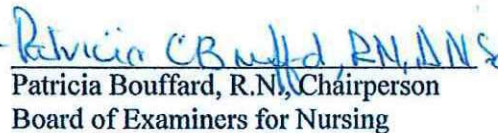 Patricia C Bouffard, RN, DNSc
Patricia Bouffard, R.N., Chairperson
Board of Examiners for Nursing